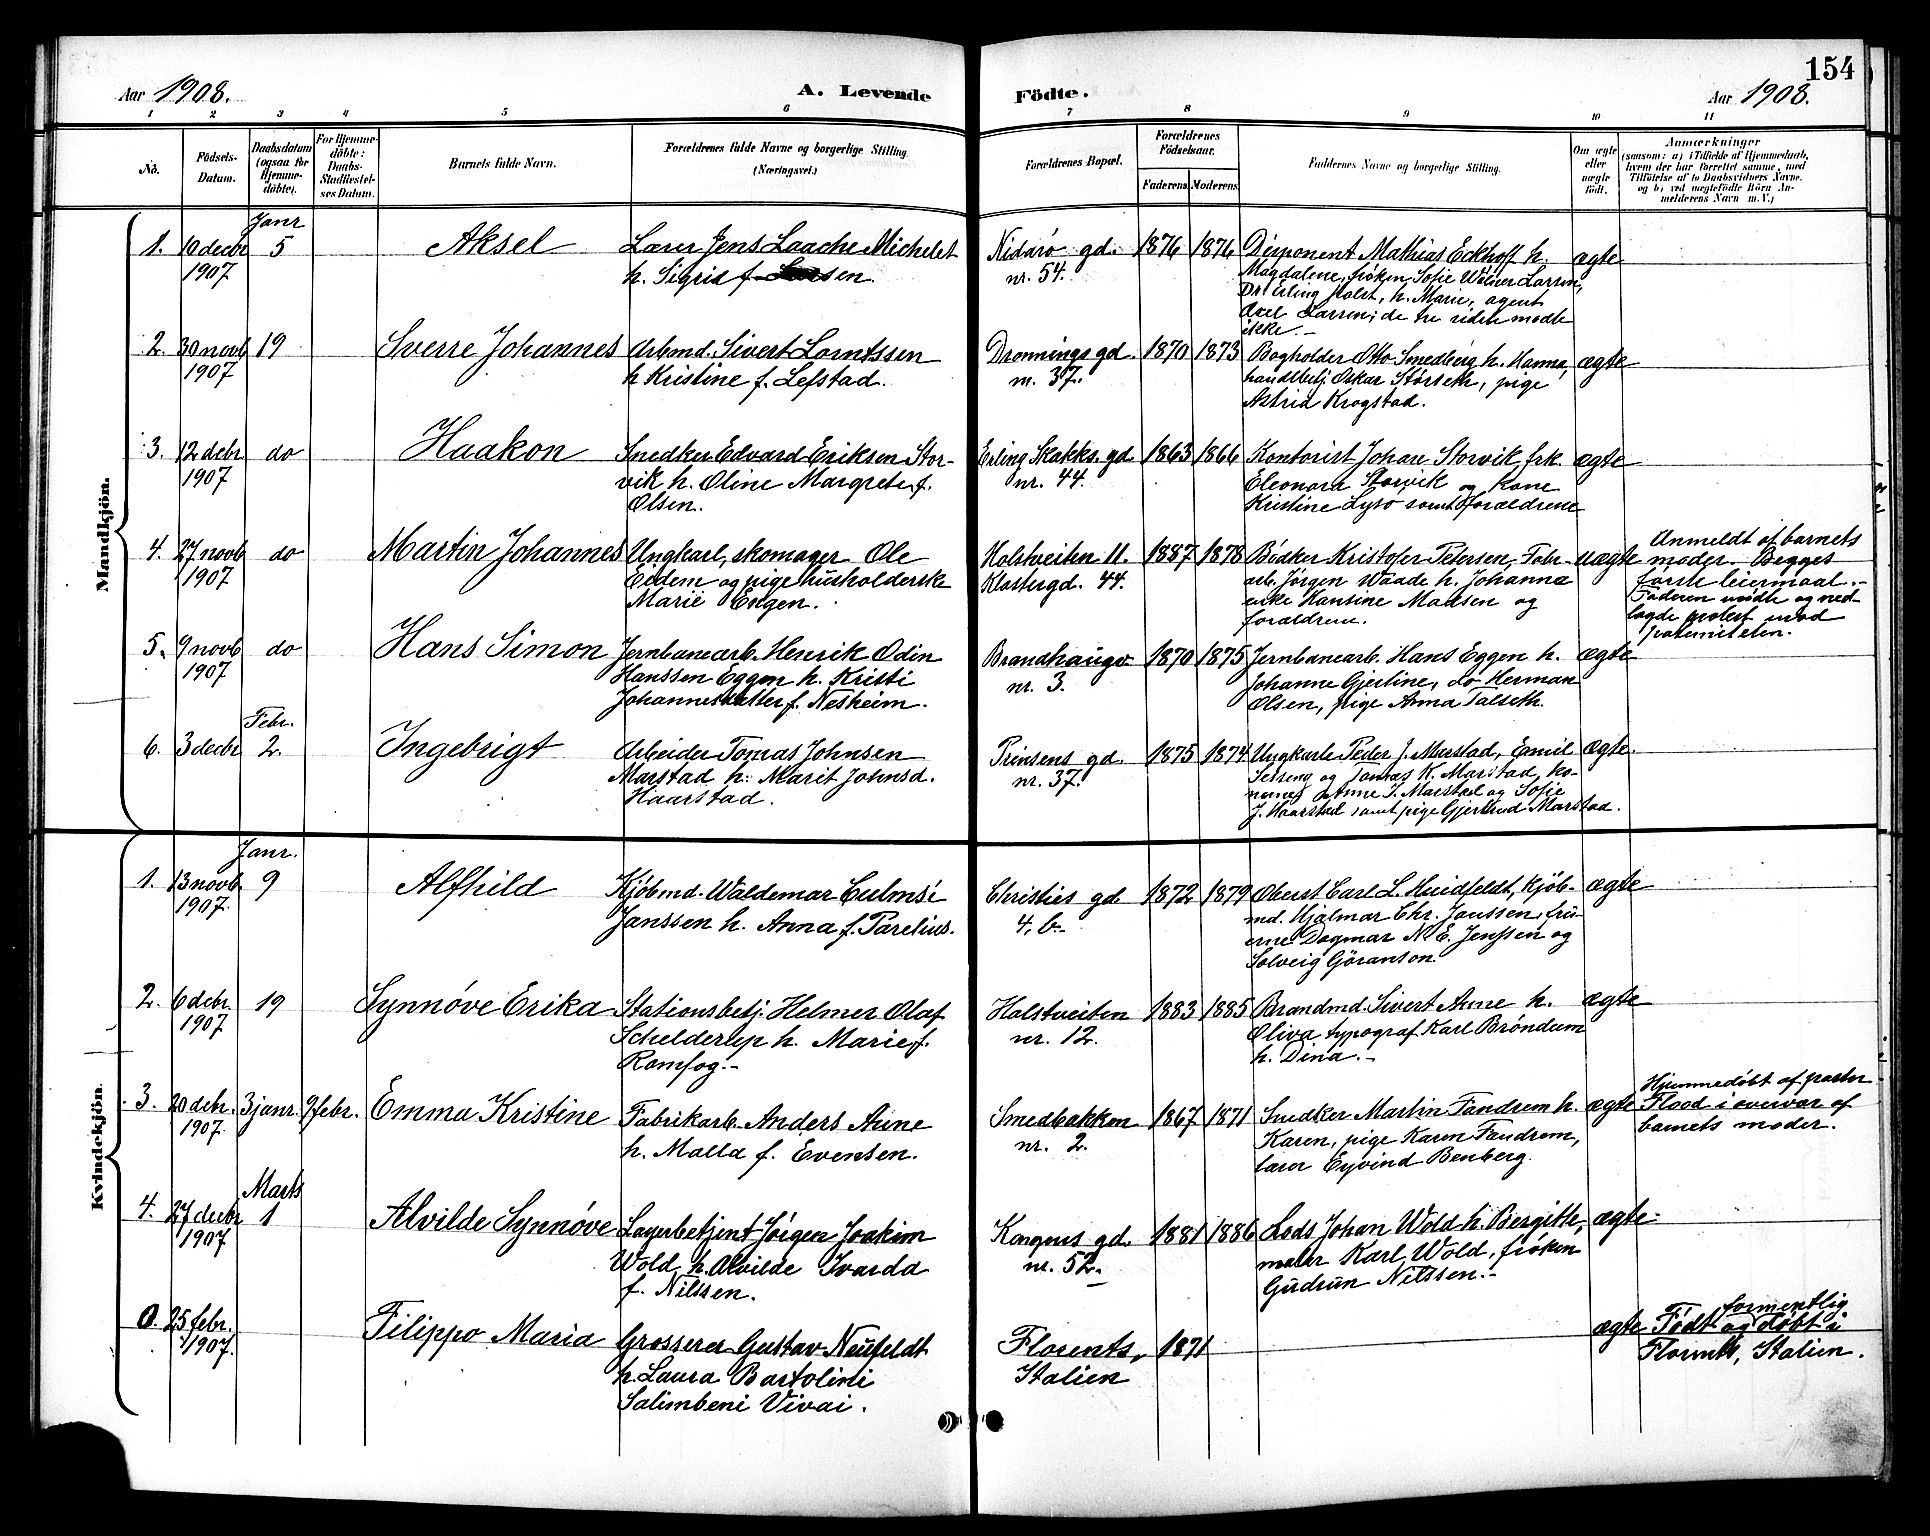 154
Aar 1908.
A. Levende Födte.
Aar 1908.
1 2 3 4 5 6 7 8 9 10 11
No.
Födsels-
Datum.
Daabsdatum
(ogsaa for
Hjemme-
döbte).
For Hjemme-
döbte:
Daabs-
Stadfæstel-
ses Datum.
Barnets fulde Navn.
Forældrenes fulde Navne og borgerlige Stilling
(Næringsvei.)
Forældrenes Bopæl.
Forældrenes
Födselsaar.
Faderens Moderens
Faddernes Navne og borgerlige Stilling.
Om ægte
eller
uægte
födt.
Anmærkninger
(saasom: a) i Tilfælde af Hjemmedaab,
hvem der har forrettet samme, med
Tilföielse af to Daabsvidners Navne.
og b) ved uægtefödte Börn An-
melderens Navn m. V.)
Mandkjön.
Janr
1. 10 decbr 5 Aksel Lærer Jens Laache Michelet Nidarø gd. 1876 1876 Disponent Mathias Eckhoff h. ægte
1907 h. Sigrid f. Larsen. nr. 54. Magdalene, frøken Sofie Wolner Larsen,
Dr. Erling Holst, h. Marie, agent
Axel Larsen; de tre sidste mødte
ikke.-
2. 30 novb 19 Sverre Johannes Arbmd. Sivert Lorntssen Dronnings gd. 1870 1873 Bogholder Otto Smedberg h. Hanna, ægte
1907 h Kristine f. Lefstad. nr. 37. handlbetj. Oskar Størseth, pige
Astrid Krogstad.
3. 12 decbr do Haakon Snedker Edvard Eriksen Stor- Erling Skakks. gd 1863 1866 Kontorist Johan Storvik, frk. ægte
1907 vik h. Oline Margrete f. nr. 44. Eleonora Storvik og kone
Olsen. Kristine Lysø samt forældrene
4. 27 novb do Martin Johannes Ungkarl, skomager Ole Holstveiten 11. 1887 1878 Bødker Kristofer Petersen, Fabr- uægte Anmeldt af barnets
1907 Eidem og pige husholderske Klostergd. 44. arb. Jørgen Waade h. Johanna moder. Begges
Marie Engen. enke Hansine Madsen og første leiermaal.-
forældrene. Faderen mødte og ned-
lagde protest mod
paterniteten.
5. 9 novb do Hans Simon Jernbanearb. Henrik Odin Brandhaugv 1870 1875 Jernbanearb. Hans Eggen h. ægte
1907 Hanssen Eggen h. Kristi nr. 3. Johanne Gjertine, do Herman
Johannesdatter f. Nesheim. Olsen, pige Anna Talseth.
Febr.
6. 3 decbr 2. Ingebrigt Arbeider Tomas Johnsen Prinsens gd. 1875 1874 Ungkarle Peder J. Marstad, Emil ægte
Marstad h. Marit Johnsd. nr. 37. Setreng og Tomas K. Marstad, ko-
Haarstad. nerne Anne T. Marstad og Sofie
J. Haarstad samt pige Gjertrud Marstad.
Kvindekjön.
Janr.
1. 13 novb. 9 Alfhild Kjöbmd. Waldemar Culmsi Christies gd 1872 1879 Oberst Carl L. Huidfeldt, Kjöb- ægte
1907. Janssen h. Anna f. Parelius. 4. b. md. Hjalmar Chr. Janssen, fru-
erne Dagmar N. E. Jenssen og
Solveig Göranson.
2. 6 debr. 19 Synnøve Erika Stationsbetj. Helmer Olaf Holstveiten 1883 1885 Brandmd. Sivert Aune h. ægte
1907 Schelderup h. Marie f. nr. 12. Oliva typograf Karl Brøndum
Romfog.- h. Dina.-
3. 20 debr. 3 janr. 9 febr. Emma Kristine Fabrikarb. Anders Aune Smedbakken 1867 1871 Snedker Martin Tandrem h. ægte Hjemmedøbt af pastor
1907. h. Malla f. Evensen. nr. 2. Karen, pige Karen Tandrem, Flood i overvær af
lærer Eyvind Benberg. barnets moder.
Marts
4. 27 decbr 1 Alvilde Synnøve Lagerbetjent Jørgen Joakim Kongens gd. 1881 1886 Lods Johan Wold h. Bergitte, ægte.
1907 Wold h. Alvilde Ivarda nr. 52. maler Karl Wold, frøken
f. Nilssen. Gudrun Nilssen.-
0. 25 febr. Filippo Maria Grosserer Gustav Neufeldt Florents, 1871 ægte Födt og formentlig døbt i
1907. h. Laura Bartolini Italien Florents, Italien.
Salimbeni Vivai.